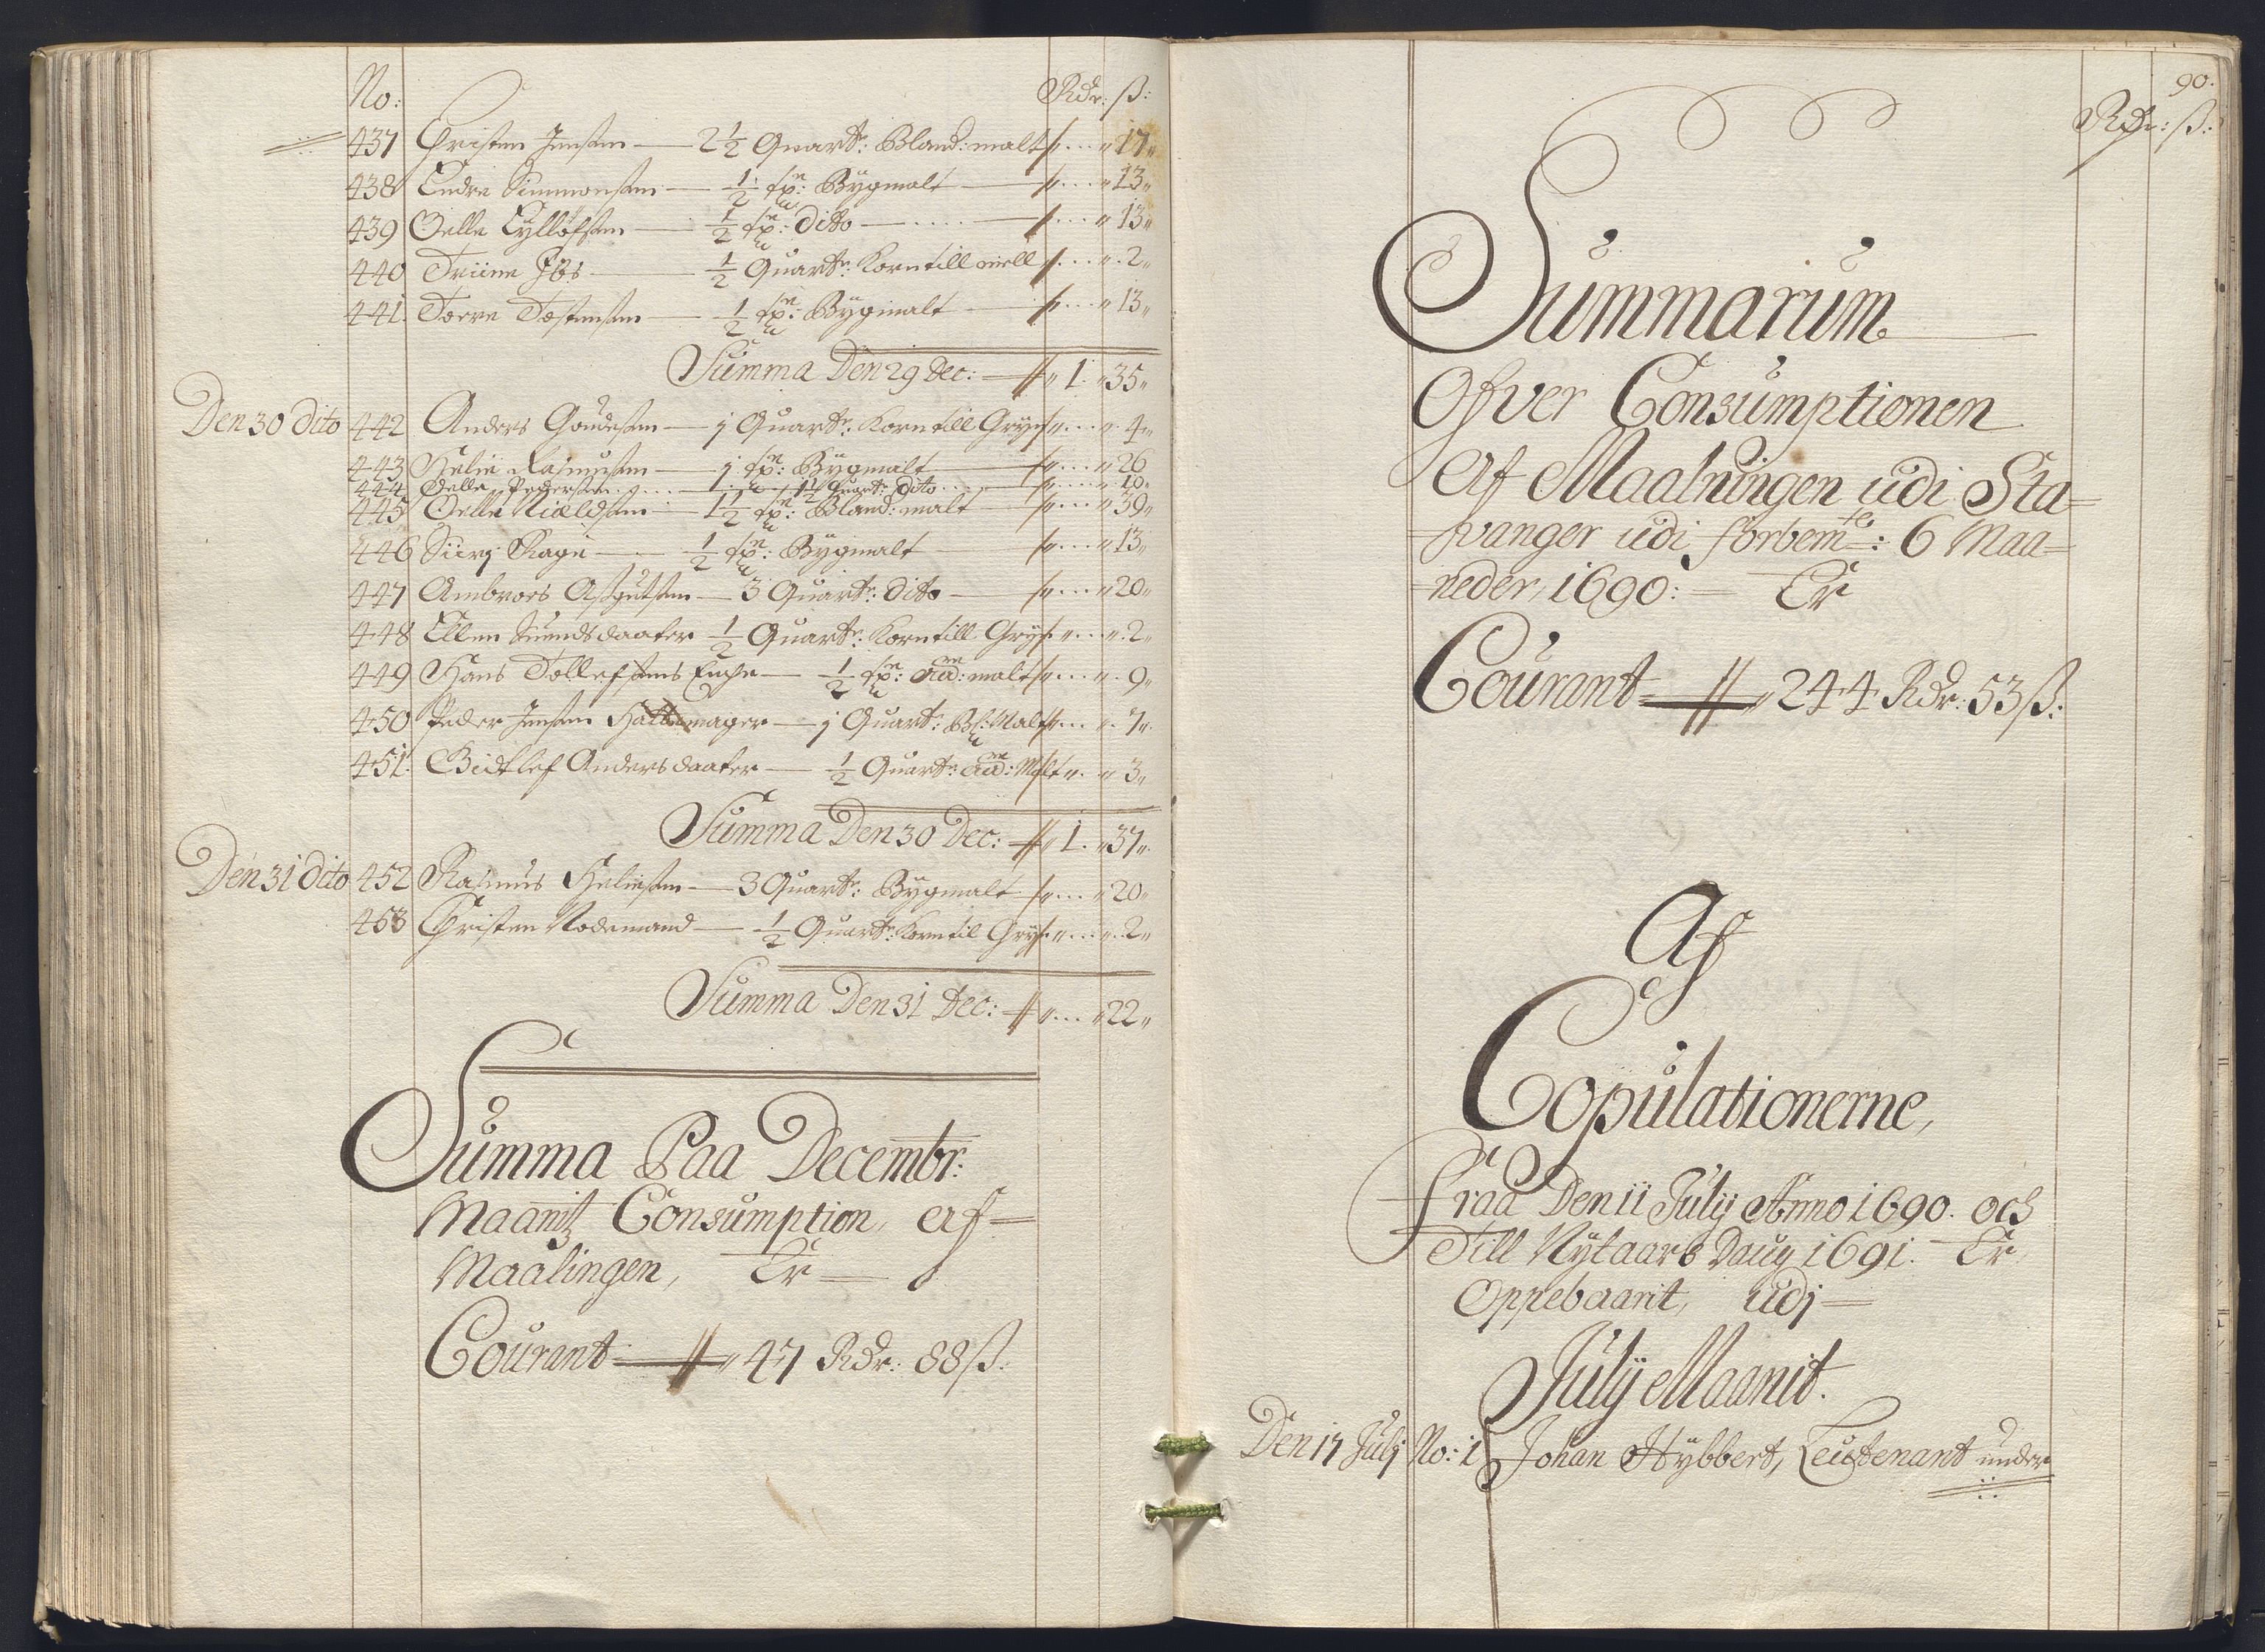 No: Rdr: ß:
437 Christen Jensen — 2½ Quart: Bland: malt „ 17„
438 Endre Simmensen — ½ sp: Bygmalt — „ 13„
439 Oelle Eyllofsen — ½ sp: dito — „ 13„
440 Triine Ibs — ½ Quart: Korn till miell „ 2„
441 Torre Tostensen — ½ sp: Bygmalt — „ 13„
Summa Den 29 Dec: — „ 1 „ 35„
Den 30 Dito 442 Anders Goudesen — j Quart: Korn till Gryn „ 4„
443 Helie Rasmusen — j sp: Bygmalt — „ 26
444 Oelle Pedersen — 1½ Quart: dito „ 10„
445 Oelle Nieldsen — 1½ sp: Bland: malt — „ 39„
446 Siurj Rage — ½ sp: Bygmalt — „ 13„
447 Ambroes Asgutsen — 3 Quart: dito — „ 20„
448 Ellen Suendsdaater — ½ Quart: Korn till Gryn „ 2„
449 Hans Tollefsens Enche — ½ sp: malt „ 9„
450 Peder Jensen mager — j Quart: Bl: Malt „ 7„
451 Bidtlef Andersdaater — ½ Quart: Malt „ 3„
Summa Den 30 Dec: — „ 1 „ 37„
Den 31 Dito 452 Rasmus Heliesen — 3 Quart: Bygmalt „ 20„
453 Christen Nodemand — ½ Quart: Korn til Gryn „ 2„
Summa Den 31 Dec: — „ 22„
Summa Paa Decembr:
Maanitz Consumption, af
Maalingen, Er —
Courant — „ 47 Rdr: 88 ß:
90.
Rdr: ß:
Summarum
Ofver Consumptionen
Af Maalningen udi Sta-
-vanger udi forbemte: 6 Maa-
-neder, 1690: — Er
Courant — „ 244 Rdr: 53 ß:
Af
Copulationerne,
Fraa Den 11 Julij Anno 1690. och
Till Nytaars Daug 1691. Er
Oppebaarit, udj —
Julij Maanit.
Den 17 Julj No: 1 Johan Hybbert, Leutenant under